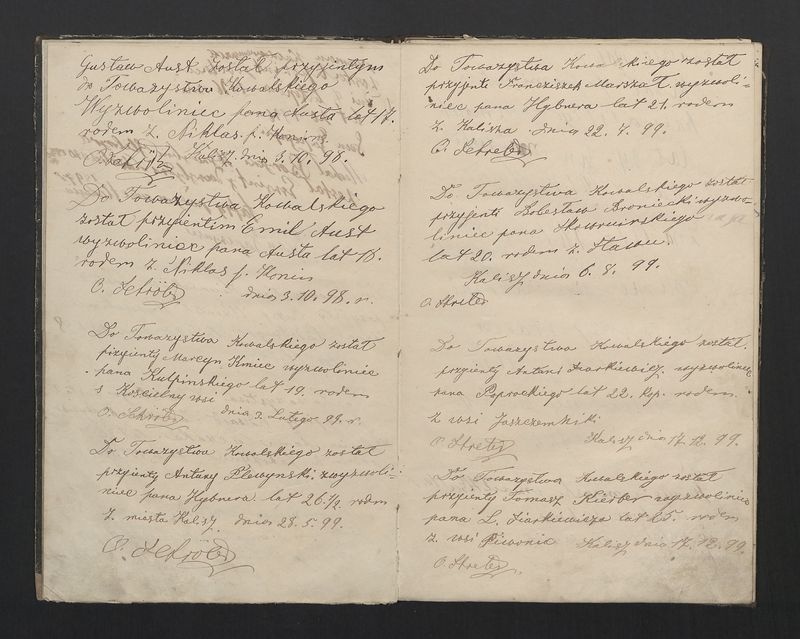 Gustaw Aust został przyjentym
do Towazystwa Kowalskiego
Wyzwoliniec pana Austa lat 17.
rodem z Niklas. p. Konins
Kalisz dnia 3.10.98.
Do Towazystwa Kowalskiego
został przyientim Emil Aust
wyzwoliniec pana Austa lat 18.
rodem z Niklas p. Konin
O. Schröter dnia 3.10.98. r.
Do Towazystwa Kowalskiego został
przyienty Marcyn Kmiec wyzwoliniec
pana Kulpinskiego lat 19. rodem
s Koscielny wsi
O. Schröter dnia 3. Lutego 99. r.
Do Towazystwa Kowalskiego został
przyienty Antany Plewynski. wyzwoli-
niec pana Hybnera lat 26.½ rodem
z miasta Kalisz dnia 28.5.99.
O. Schröter
Do Towazystwa Kowalskiego został
przyjenti Franciszek Marszał. wyzwoli-
niec pana Hybnera lat 21. rodem
z Kalisza. dnia 22.4.99.
O. Schreter
Do Towazystwa Kowalskiego został
przyjenti Bolesław Broniecki wyzwo-
liniec pana Skowruirskiego
lat 20. rodem z Stawu.
Kalisz dnia 6.8.99.
O. Streter
Do Towazystwa Kowalskiego został.
przyienty Antoni Ziarkiewicz wyzwoliniec
pana Poprockiego lat 22. rodem
z wsi
O Streter Kalisz dnia 17.12.99.
Do Towazystwa Kowalskiego został
przyienty Tomasz Kierber wyzwoliniec
pana L. Ziarkiewicza lat 25. rodem
z wsi Piwonic Kalisz dnia 17.12.99.
O. Streter